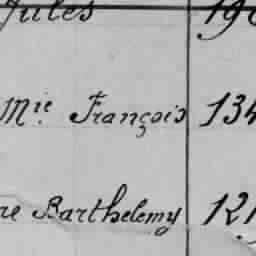 Jules 190
Mie François 134
re Barthelemy 121